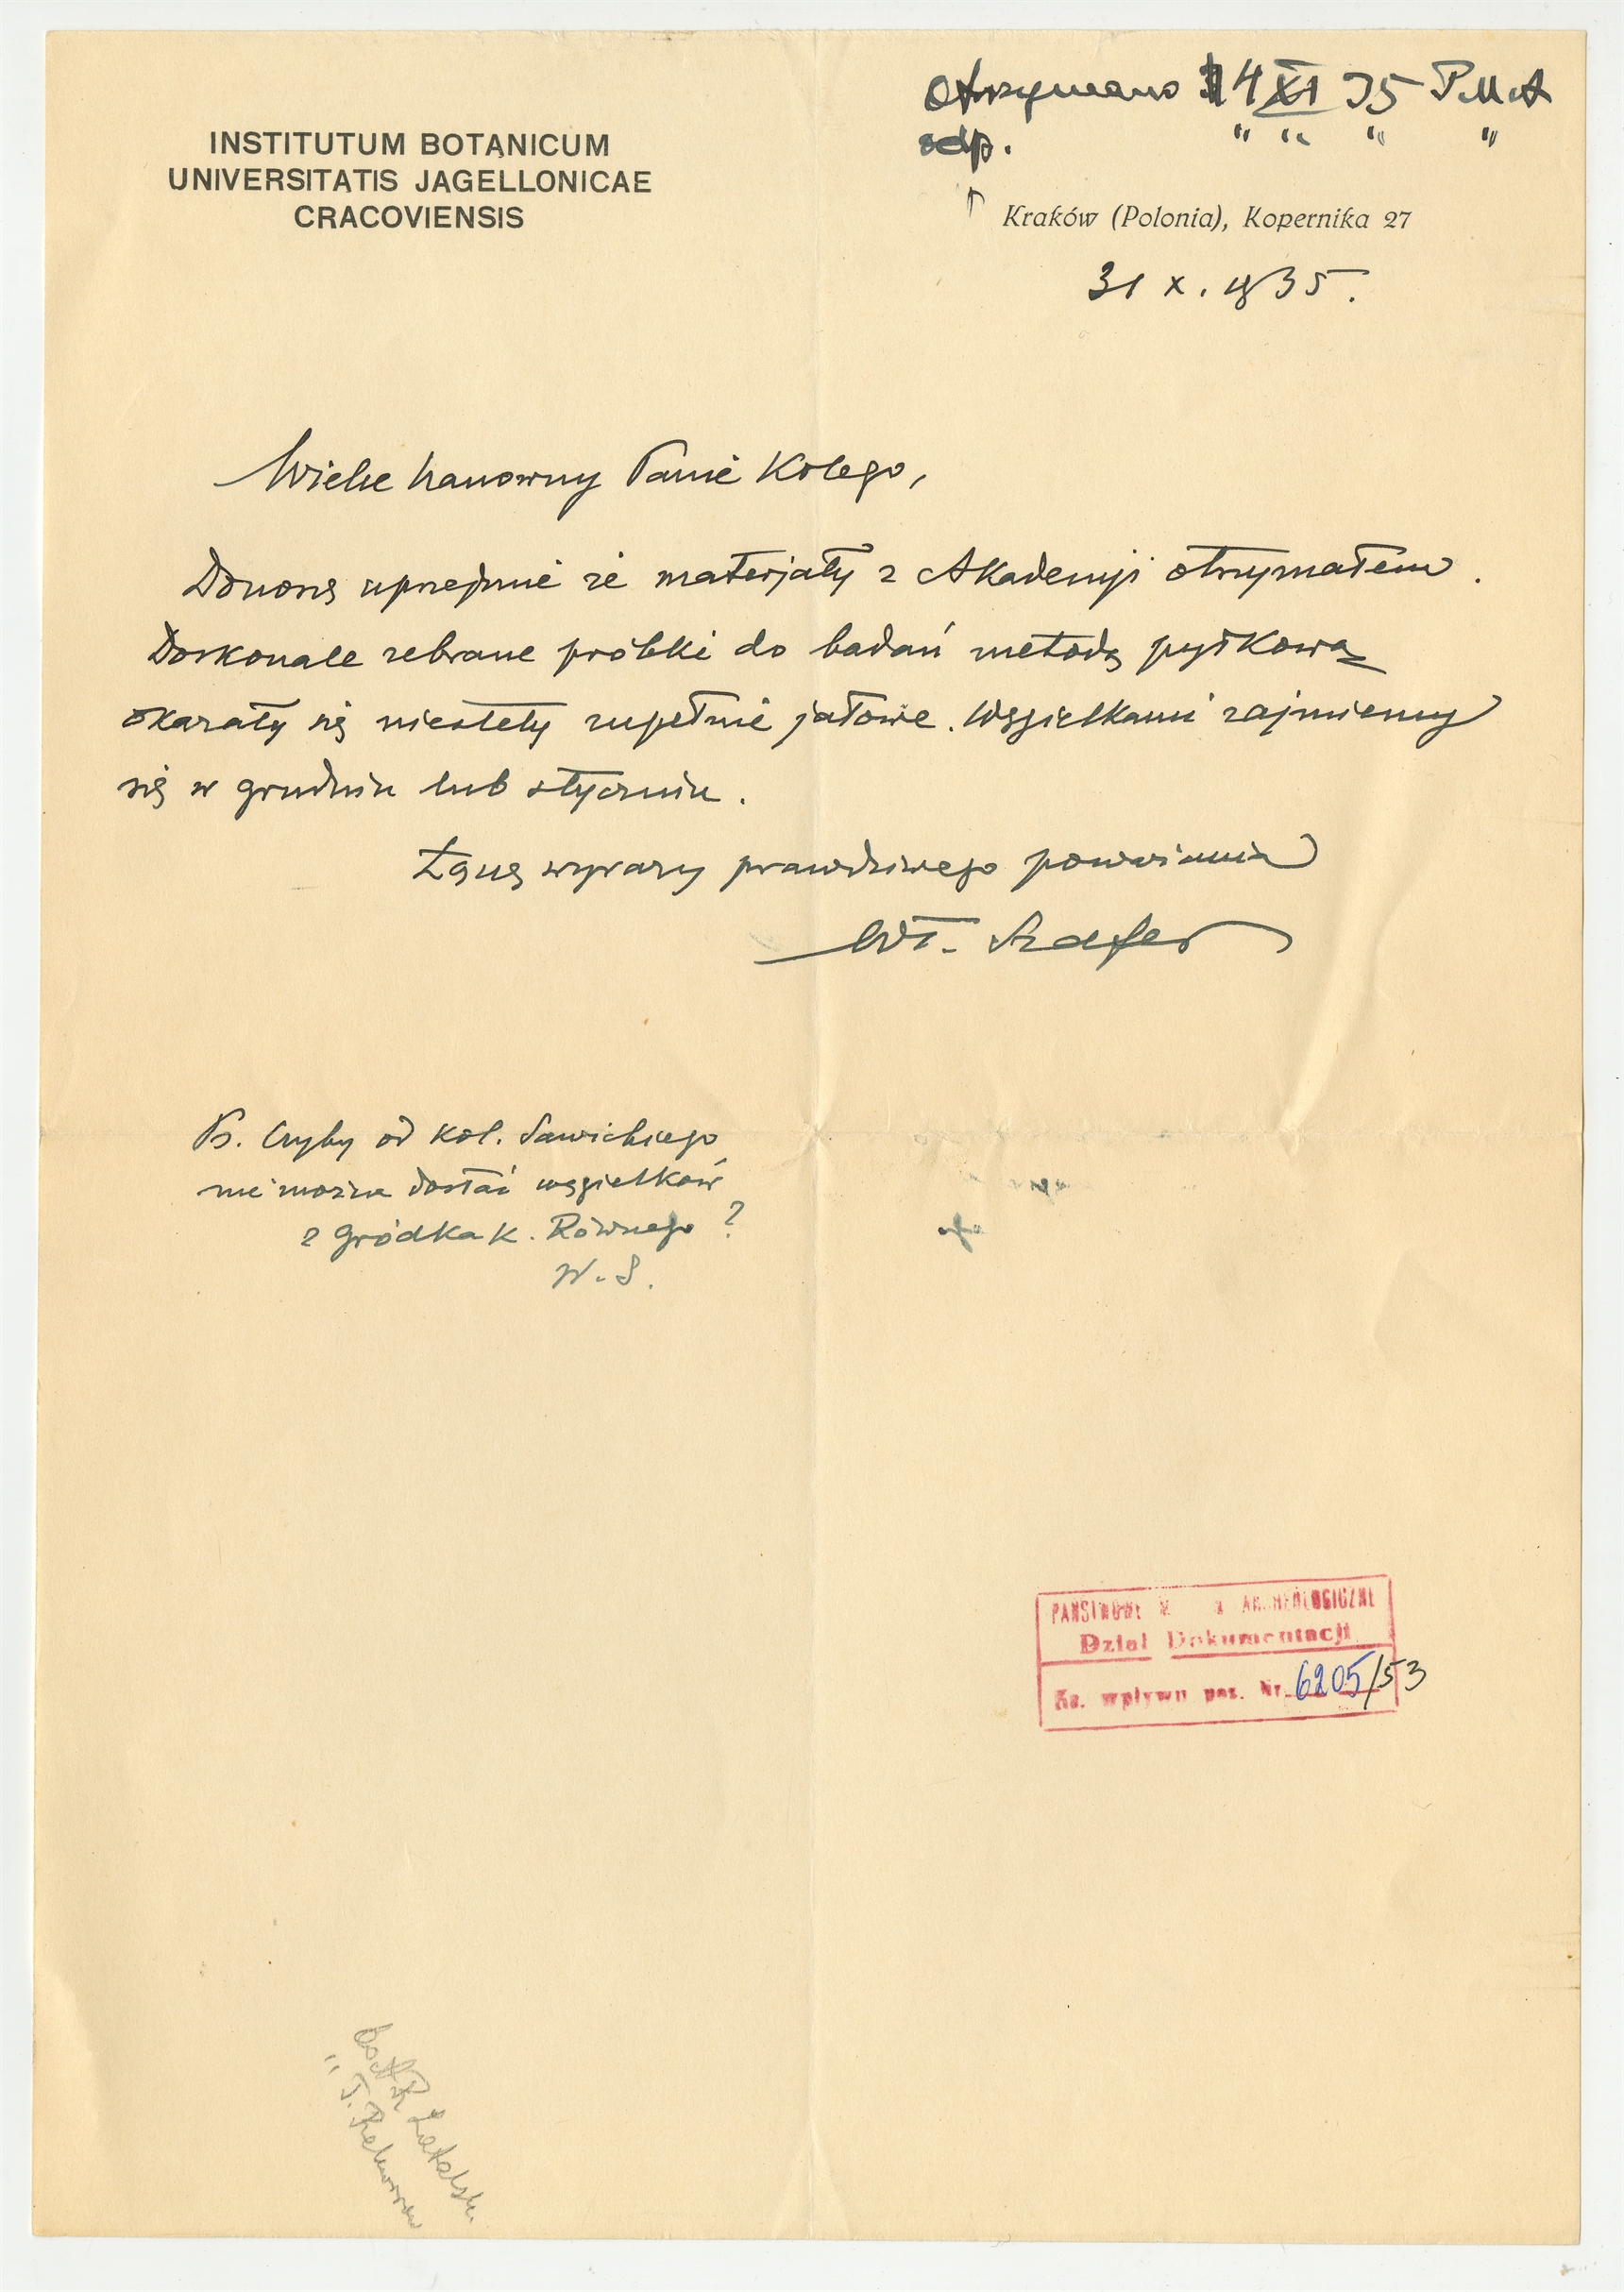 Otrzymano 4 XI 35 P.M.A
odp. " " " "
INSTITUTUM BOTANICUM
UNIVERSITATIS JAGELLONICAE
CRACOVIENSIS
Kraków (Polonia), Kopernika 27
31 X. 1935.
Wielce Szanowny Panie Kolego,
Donoszę uprzejmie że materjały z Akademji otrzymałem.
Doskonale zebrane próbki do badań metodą pyłkową
okazały się niestety zupełnie jałowe. Węgielkami zajmiemy
się w grudniu lub styczniu.
Łączę wyrazy prawdziwego poważania
Wł. Szafer
Ps. Czyby od kol. Sawickiego
nie można dostać węgielków
z Gródka k. Równego?
W. S.
PAŃSTWOWE ARCHEOLOGICZNE
Dział Dokumentacji
Ks. wpływu poz. Nr. 6205/53